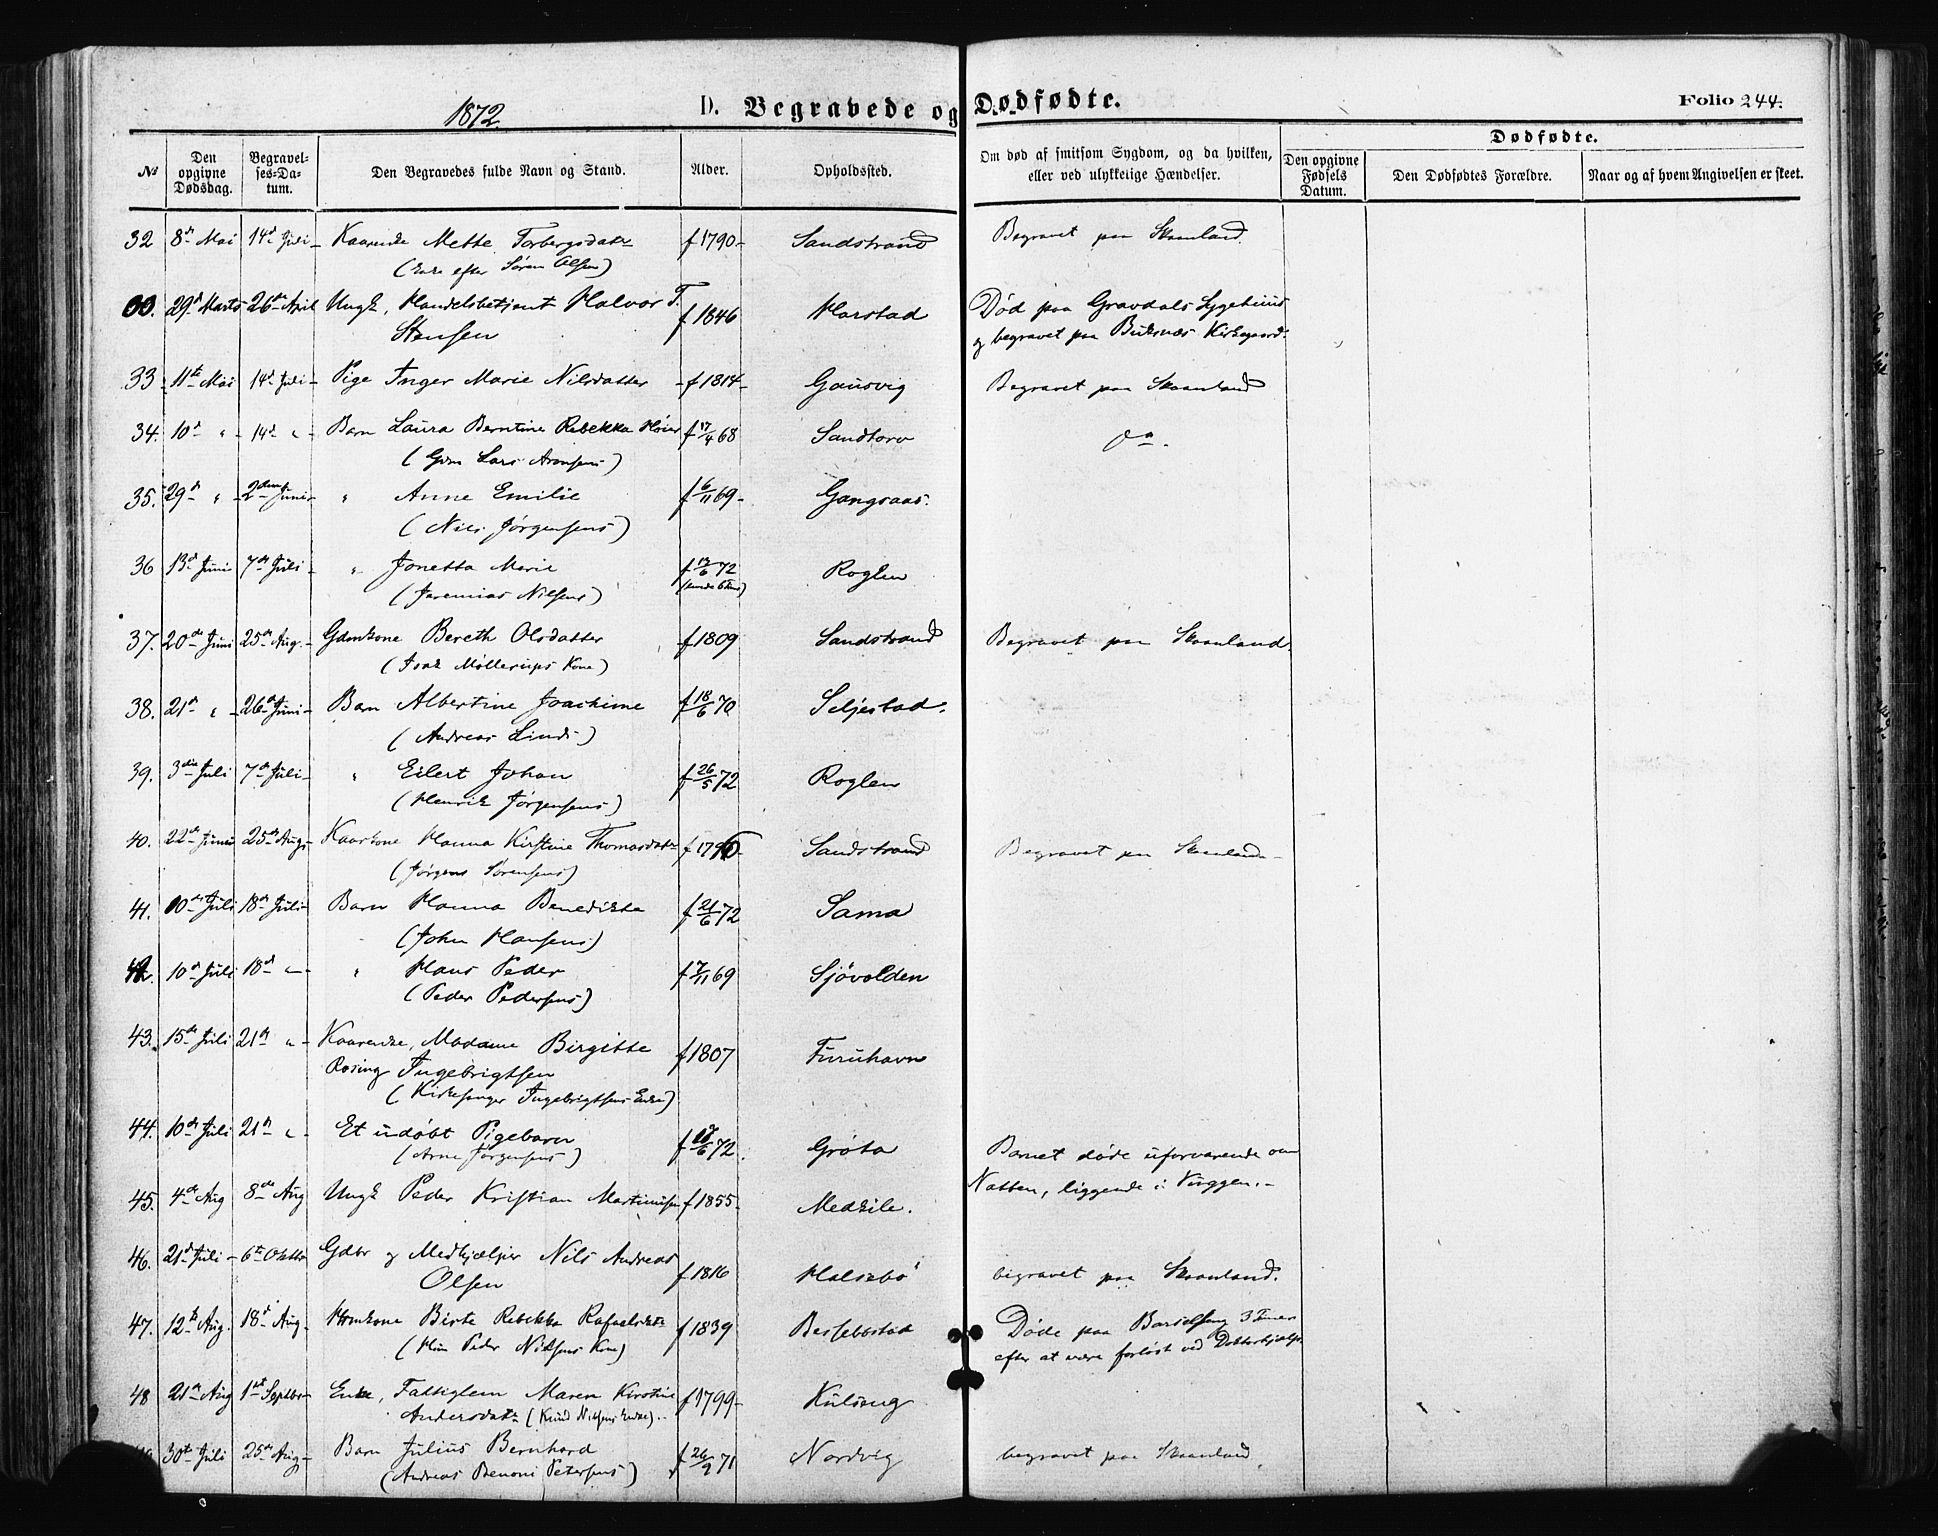 1872.
D. Begravede og Dødfødte.
Folio 244.
Dødfødte.
№
Den opgivne Dødsdag.
Begravelses-Datum.
Den Begravedes fulde Navn og Stand.
Alder.
Opholdssted.
Om død af smitsom Sygdom, og da hvilken, eller ved ulykkelige Hændelser.
Den opgivne Fødsels Datum.
Den Dødfødtes Forældre.
Naar og af hvem Angivelsen er skeet.
32 8de Mai 14de Juli Kaarenke Mette Torbergsdatr f 1790 Sandstrand Begravet paa Skaanland.
(Enke efter Søren Olsen)
00. 29de Marts 26de April Ungk. Handelsbetjent Halvor T. f 1846 Harstad Død paa Gravdals Sygehuus
Stensen og begravet paa Buksnæs Kirkegaard.
33 11te Mai 14de Juli Pige Inger Marie Nilsdatter f 1814 Gausvig Begravet paa Skaanland
34. 10de " 14de " Barn Laura Berntine Rebekka Høier f 17/4 68 Sandtorv do.
(Gdm Lars Aronsens)
35. 29de " 2den Juni " Anne Emilie f 6/11 69 Gangsaas.
(Nils Jørgensens)
36 13de Juni 7de Juli " Jonetta Marie f 13/6 72 Roglen
(Jeremias Nilsens)
37. 20de Juni 25de Aug. Gdmkone Bereth Olsdatter f 1809 Sandstrand Begravet paa Skaanland.
(Isak Møllerups Kone)
38. 21de " 26de Juni Barn Albertine Joachime f 18/6 70 Seljestad.
(Andreas Linds)
39. 3die Juli 7de Juli " Eilert Johan f 26/5 72 Roglen
(Henrik Jørgensens)
40. 22de Juni 25de Aug. Kaarkone Hanna Kirstine Thomasdatr f 1790 Sandstrand Begravet paa Skaanland
(Jørgen Sørensens)
41. 10de Juli 18de Juli Barn Hanna Benedikte f 21/6 72 Sama
(John Hansens)
42. 10de Juli 18de " " Hans Peder f 7/11 69 Sjøvolden
(Peder Pedersens)
43. 15de Juli 21de " Kaarenke, Madame Birgitte f 1807 Furuhavn
Rosing Ingebrigtsen
(Kirkesanger Ingebrigtsens Enke)
44. 10de Juli 21de " Et udøbt Pigebarn f /6 72. Grøta Barnet døde uforvarende om
(Arne Jørgensens) Natten, liggende i Vuggen.
45. 4de Aug 8de Aug Ungk Peder Kristian Martinusen f 1855 Medkile.
46. 21de Juli 6te Oktbr Gdbr og Medhjælper Nils Andreas f 1816 Halsebø begravet paa Skaanland.
Olsen
47. 12te Aug. 18de Aug. Hmkone Birte Rebekka Rafaelsdatr f 1839 Bessebostad Døde paa Barselseng 3 Timer
(Hm Peder Nilsens Kone) efter at være forløst ved Doktorhjælp.
48 21de Aug 1ste Septbr Enke, Fattiglem Maren Kirstine f 1799 Kulseng
Andersdatr (Knud Nilsens Enke).
30te Juli 25de Aug. Barn Julius Bernhard f 26/9 71 Nordvig begravet paa Skaanland.
(Andreas Benoni Petersens)